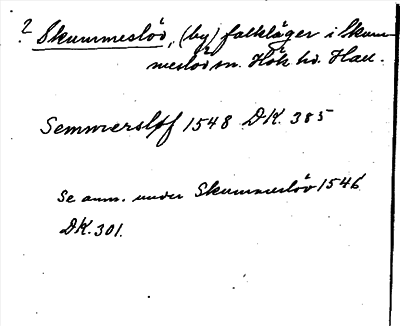 ? Skummeslöv, (by) falkläger i Skum-
meslövsn. Hök hd. Hall.
Semmersløf 1548 DK. 385
Se anm. under Skummeslöv 1546
DK. 301.